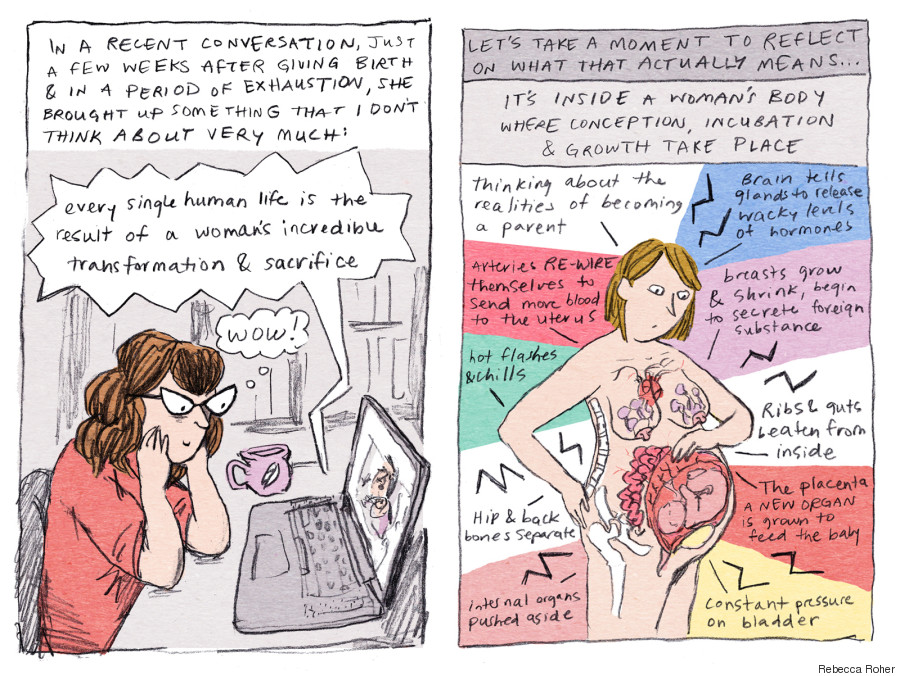 IN A RECENT CONVERSATION, JUST
A FEW WEEKS AFTER GIVING BIRTH
& IN A PERIOD OF EXHAUSTION, SHE
BROUGHT UP SOMETHING THAT I DON'T
THINK ABOUT VERY MUCH:
every single human life is the
result of a woman's incredible
transformation & sacrifice
wow!
LET'S TAKE A MOMENT TO REFLECT
ON WHAT THAT ACTUALLY MEANS...
IT'S INSIDE A WOMAN'S BODY
WHERE CONCEPTION, INCUBATION
& GROWTH TAKE PLACE
thinking about the
realities of becoming
a parent
Brain tells
glands to release
wacky levels
of hormones
Arteries RE-WIRE
themselves to
send more blood
to the uterus
breasts grow
& shrink, begin
to secrete foreign
substance
hot flashes
& chills
Ribs & guts
beaten from
inside
Hip & back
bones separate
The placenta
A NEW ORGAN
is grown to
feed the baby
internal organs
pushed aside
constant pressure
on bladder
Rebecca Roher